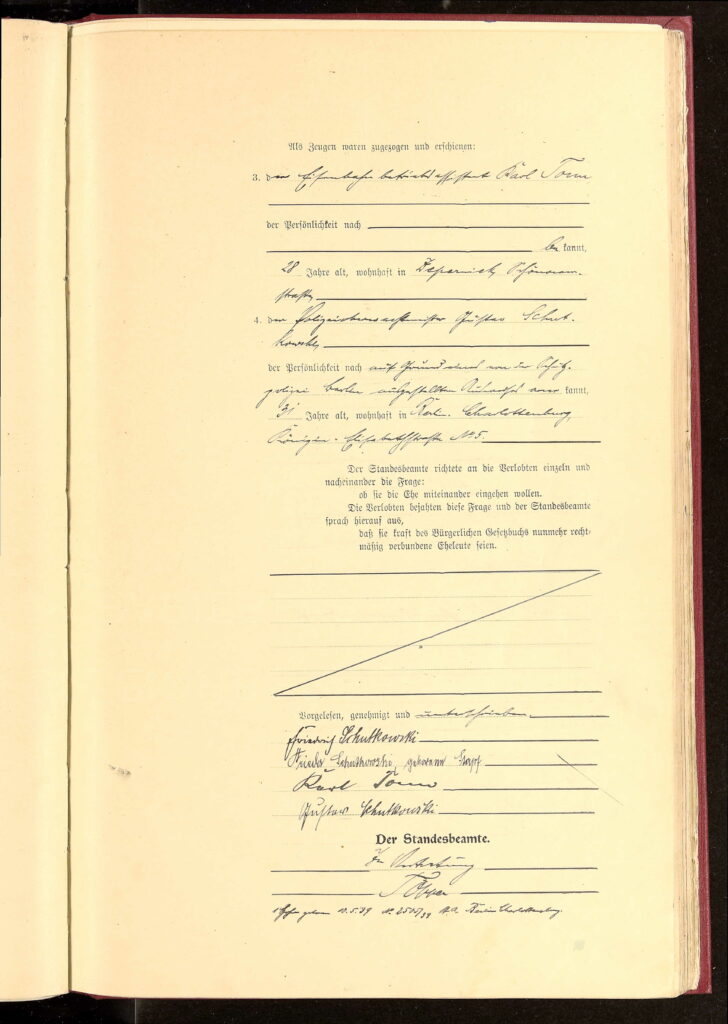 Als Zeugen waren zugezogen und erschienen:
3. der Eisenbahnbetriebsassistent Karl Tonn
der Persönlichkeit nach
be kannt,
28 Jahre alt, wohnhaft in Zepernick, Schönower-
straße
4. der Polizeioberwachtmeister Gustav Schut-
kowski
der Persönlichkeit nach auf Grund eines von der Schutz-
polizei Berlin ausgestellten Ausweises aner kannt,
31 Jahre alt, wohnhaft in Berlin-Charlottenburg,
Königin-Elisabethstraße No 5.
Der Standesbeamte richtete an die Verlobten einzeln und
nacheinander die Frage:
ob sie die Ehe miteinander eingehen wollen.
Die Verlobten bejahten diese Frage und der Standesbeamte
sprach hierauf aus,
daß sie kraft des Bürgerlichen Gesetzbuchs nunmehr recht-
mäßig verbundene Eheleute seien.
Vorgelesen, genehmigt und unterschrieben
Friedrich Schutkowski
Frieda Schutkowski, geborene
Karl Tonn
Gustav Schutkowski
Der Standesbeamte.
In Vertretung
Berlin Charlottenburg.